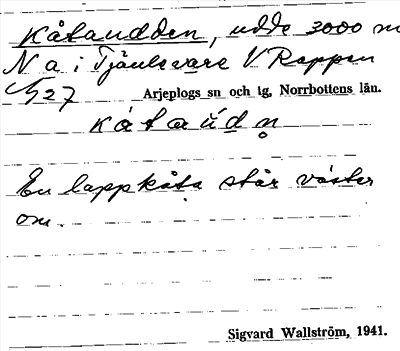 Kåtaudden, udde 3000 m
N a i Tjäulevare V Rappen
C/1 27
Arjeplogs sn och tg, Norrbottens län.
kåtaúdn̥
En lappkåta står väster
om.
Sigvard Wallström, 1941.